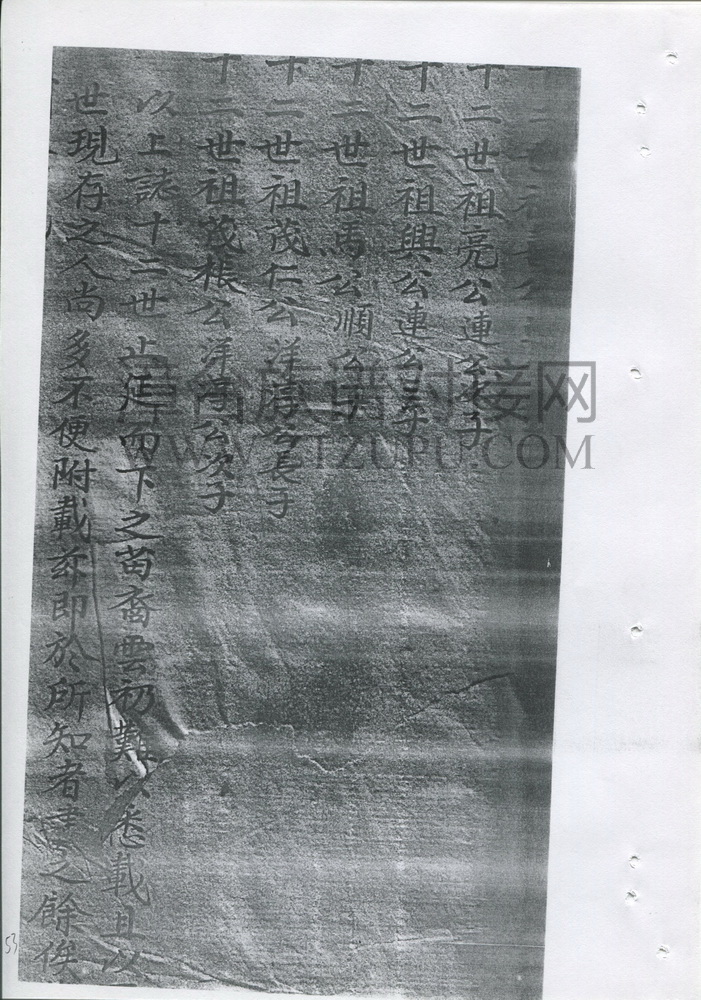 十二世祖亮公連公七子
十二世祖興公連公三子
十二世祖馬公順公子
十二世祖茂仁公洋淳公長子
十二世祖茂棖公洋淳公次子
以上誌十二世止延而下之苗裔雲礽難以悉載且以
世現存之人尚多不便附載茲即於所知者書之餘俟
WWW.JTZUPU.COM
53